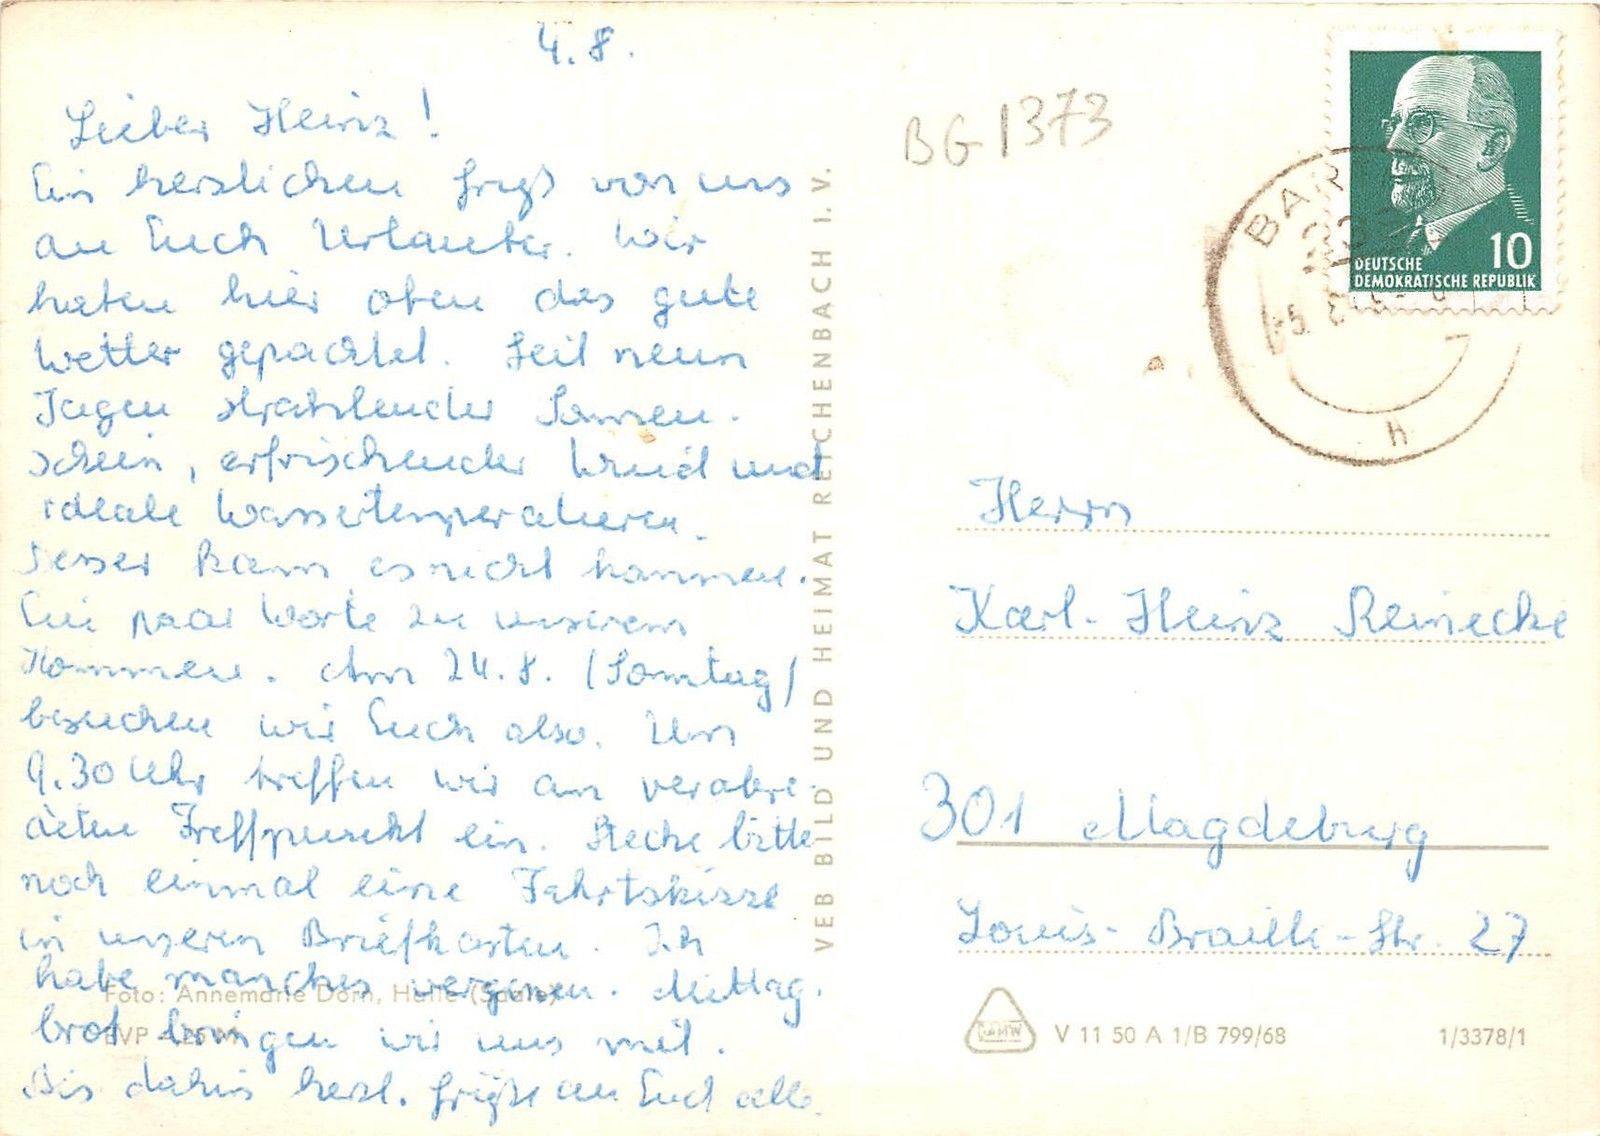 4.8.
Lieber Heinz!
Ein herzlichen Gruß von uns
an Euch Urlauber. Wir
haben hier oben das gute
Wetter gepachtet. Seit neun
Tagen strahlender Sonnen-
schein, erfrischender Wind und
ideale Wassertemperaturen.
Besser kann es nicht kommen.
Ein paar Worte zu unserem
Kommen. Am 24.8. (Sonntag)
besuchen wir Euch also. Um
9.30 Uhr treffen wir am verabre-
deten Treffpunkt ein. Stecke bitte
noch einmal eine Fahrtskizze
in unseren Briefkasten. Ich
habe manches vergessen. Mittag-
brot bringen wir uns mit.
Bis dahin herzl. Grüße an Euch alle.
Foto: Annemarie Dorn, Halle (Saale)
EVP
VEB BILD UND HEIMAT REICHENBACH I. V.
BG 1373
BART
h
10
DEUTSCHE
DEMOKRATISCHE REPUBLIK
Herrn
Karl-Heinz Reinecke
301 Magdeburg
Louis-Braille-Str. 27
V 11 50 A 1/B 799/68
1/3378/1